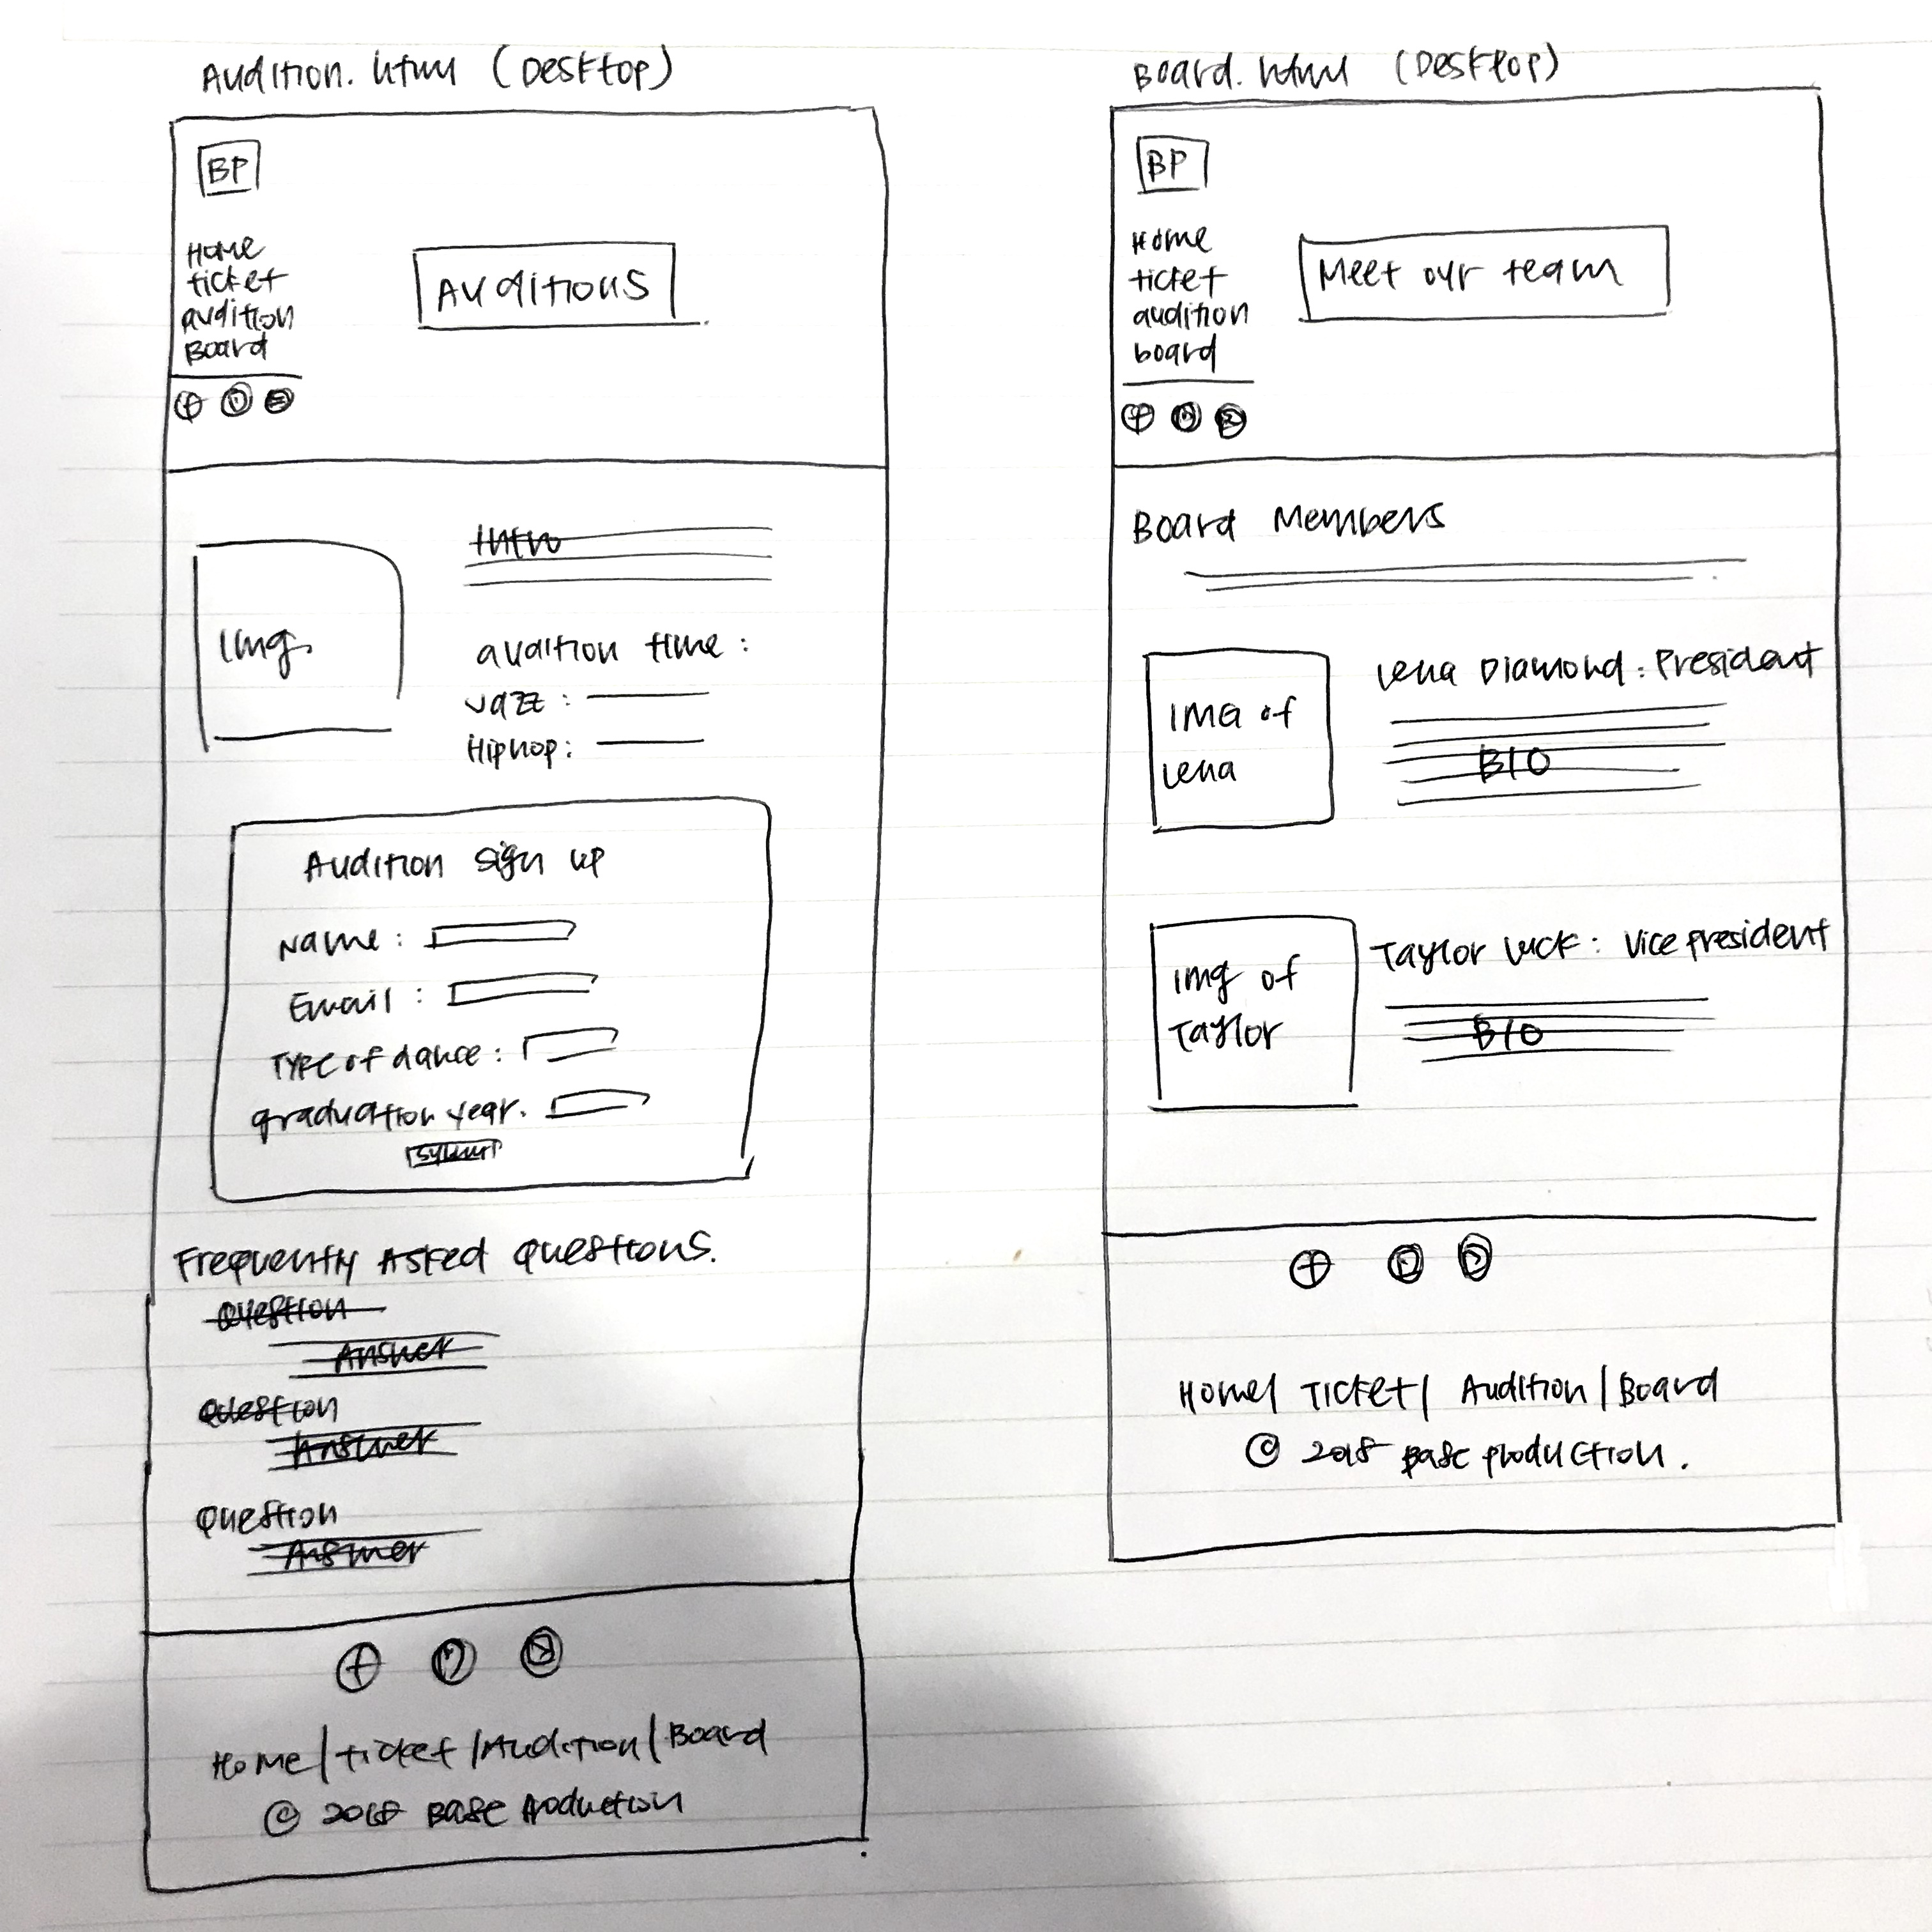 Audition.html (Desktop)
BP
Home
ticket
audition
Board
AUditions
Intro
Img.
audition time :
Jazz :
Hiphop :
Audition sign up
Name :
Email :
TYPE of dance :
graduation year.
submit
Frequently Asked Questions.
Question
Answer
Question
Answer
Question
Answer
Home / ticket / Audition / Board
© 2018 Base Production
Board.html (Desktop)
BP
Home
ticket
audition
board
Meet our team
Board Members
IMG of
Lena
Lena Diamond : President
BIO
Img of
Taylor
Taylor Luck : Vice President
BIO
Home / Ticket / Audition / Board
© 2018 Base production.